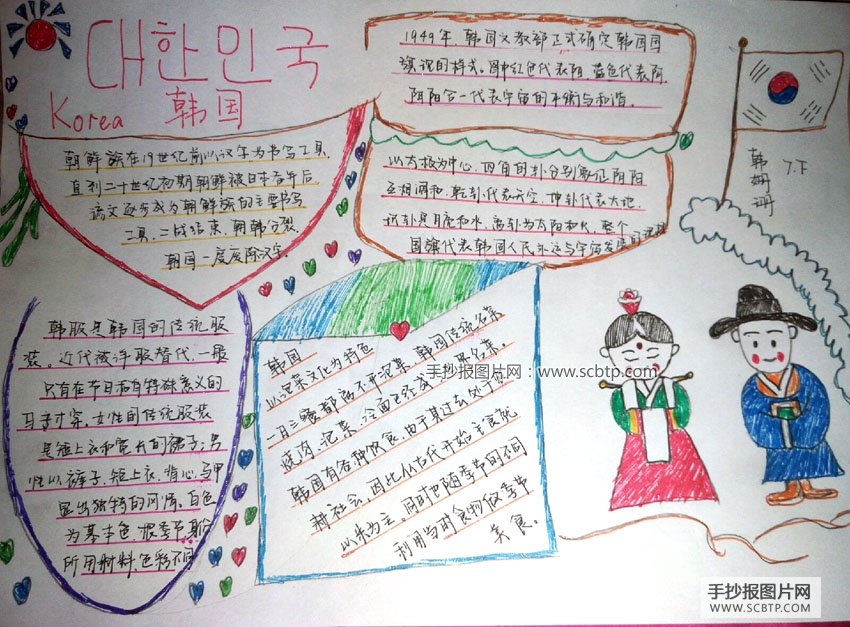 대한민국
Korea 韩国
朝鲜族在19世纪前以汉字为书写工具.
直到二十世纪初期朝鲜被日本吞并后
谚文逐步成为朝鲜族的主要书写
工具. 二战结束, 朝韩分裂.
朝国一度废除汉字.
1949年, 韩国文教部正式确定韩国国
旗现的样式。图中红色代表阳, 蓝色代表阴,
阴阳合一代表宇宙的平衡与和谐。
以太极为中心, 四角的卦分别象征阴阳
互相调和, 乾卦代表天空, 坤卦代表大地.
坎卦是月亮和水, 离卦为太阳和火, 整个
国旗代表韩国人民永远与宇宙发展的
韩姗珊
7.下
韩服是韩国的传统服
装。近代被洋服替代, 一般
只有在节日和有特殊意义的
日子才穿。女性的传统服装
是短上衣和宽大的裙子; 男
性以裤子. 短上衣. 背心. 马甲
显出独特的风情。白色
为基本色, 根季节, 身份
所用材料, 色彩不同
韩国:
以泡菜文化为特色
一日三餐都离不开泡菜。韩国传统名菜
烧肉、泡菜、冷面已经成
名菜。
韩国有各种饮食, 由于其过去处于
耕社会, 因此从古代开始主食就
以米为主。同时也随季节的不同
利用当时食物做季节
美食。
手抄报图片网：www.scbtp.com
手抄报图片网
WWW.SCBTP.COM